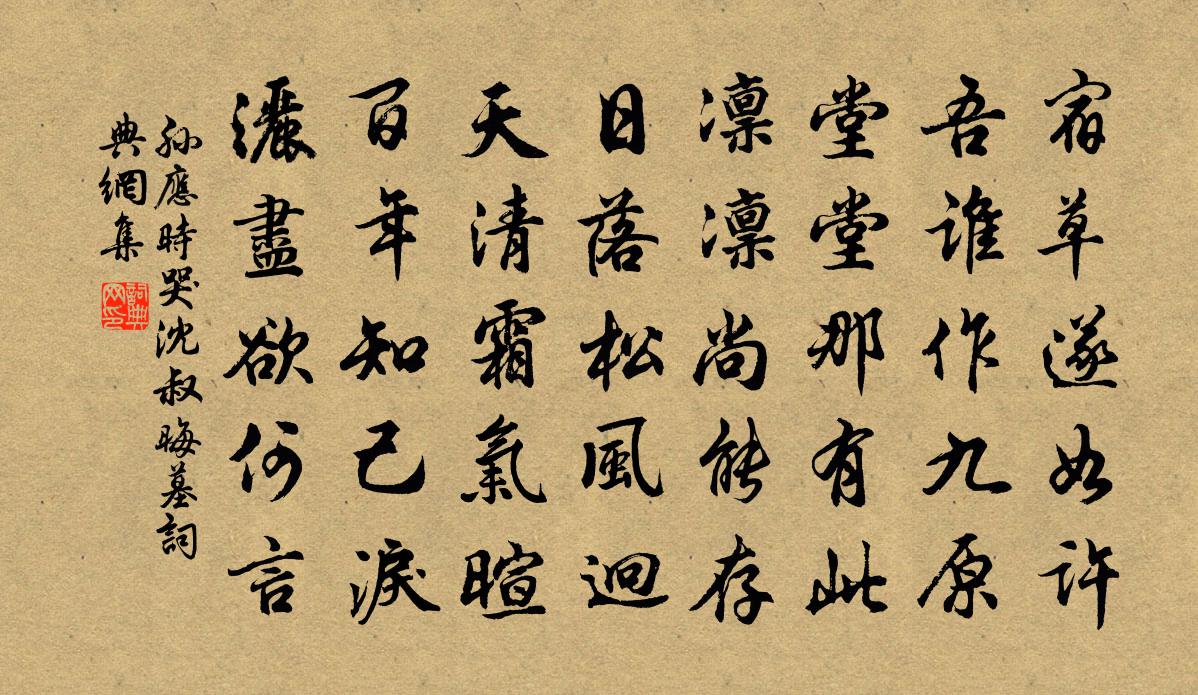 宿草遂如許
吾誰作九原
堂堂那有此
凛凛尚能存
日落松風迥
天清霜氣暄
百年知己淚
灑盡欲何言
孫應時哭沈叔晦墓詞
典網集
詞典
网印